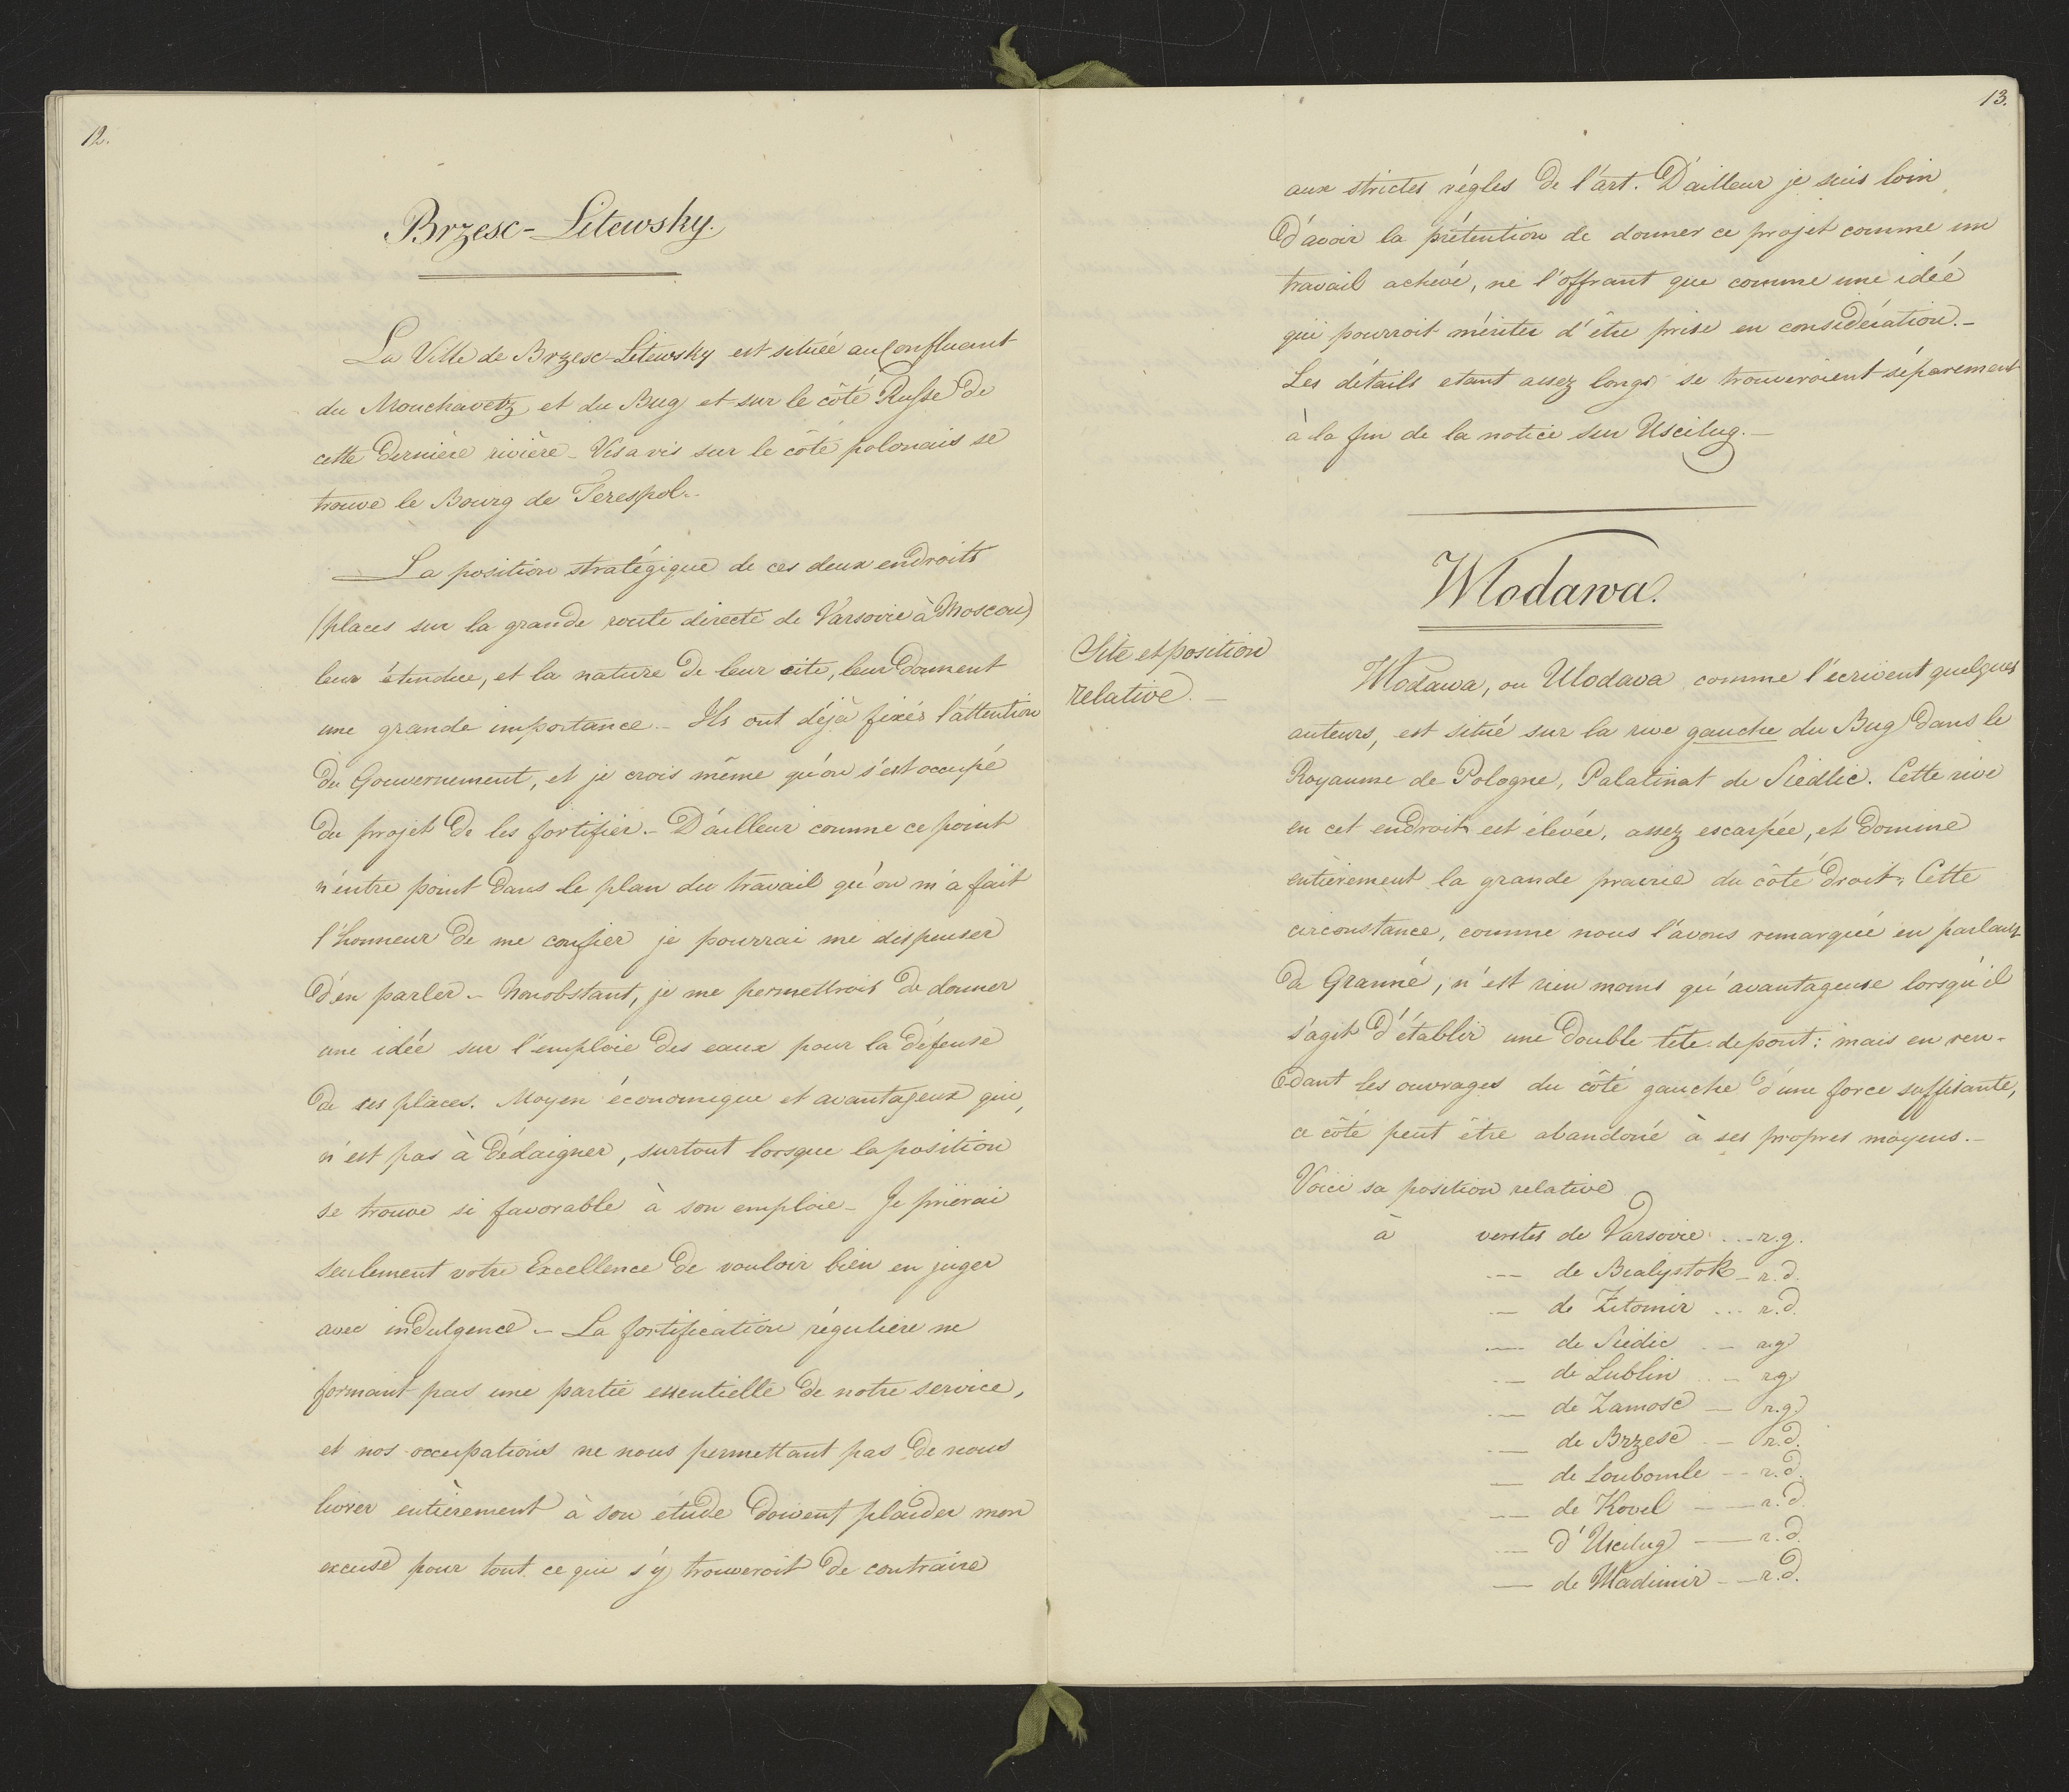 12.
Brzesc-Litewsky.
La Ville de Brzesc-Litewsky est située au Confluant
du Mouchavetz et du Bug et sur le côté Russe de
cette dernière rivière – Vis a vis sur le côté polonais se
trouve le Bourg de Terespol.
La position stratégique de ces deux endroits
(places sur la grande route directe de Varsovie à Moscou)
leur étendue, et la nature de leur site, leur donnent
une grande importance – Ils ont déjà fixés l'attention
du Gouvernement, et je crois même qu'on s'est occupé
du projet de les fortifier. – D'ailleur comme ce point
n'entre point dans le plan du travail qu'on m'a fait
l'honneur de me confier je pourrai me dispenser
d'en parler – Nonobstant, je me permettrois de donner
une idée sur l'emploie des eaux pour la défense
de ses places. Moyen économique et avantageux qui,
n'est pas à dédaigner, surtout lorsque la position
se trouve si favorable à son emploie – Je prierai
seulement votre Excellence de vouloir bien en juger
avec indulgence – La fortification régulière ne
formant pas une partie essentielle de notre service,
et nos occupations ne nous permettant pas de nous
livrer entièrement à son étude doivent plaider mon
excuse pour tout ce qui s'y trouveroit de contraire
13.
aux strictes règles de l'art. D'ailleur je suis loin
d'avoir la prétention de donner ce projet comme un
travail achevé, ne l'offrant que comme une idée
qui pourroit mériter d'être prise en considération. –
Les détails etant assez longs se trouveroient séparement
à la fin de la notice sur Uscilug. –
Wlodawa.
Site et position
relative. –
Wlodawa, ou Ulodava comme l'écrivent quelques
auteurs, est situé sur la rive gauche du Bug dans le
Royaume de Pologne, Palatinat de Siedlic. Cette rive
en cet endroit est élevée, assez escarpée, et domine
entièrement la grande prairie du côté droit. Cette
circonstance, comme nous l'avons remarquée en parlant
de Granné, n'est rien moins qu'avantageuse lorsqu'il
s'agit d'établir une double tête de pont : mais en ren-
dant les ouvrages du côté gauche d'une force suffisante,
ce côté peut être abandoné à ses propres moyens. –
Voici sa position relative
à verstes de Varsovie ... r.g.
— de Bialystok – r.d.
— de Zitomir ... r.d.
— de Siedic – r.g
— de Lublin .. – r.g
— de Zamosc — r.g
— de Brzesc — r.d.
— de Loubomle – – r.d.
— de Kovel — — r.d
— d'Uscilug — r.d.
— de Wladimir – — r.d.